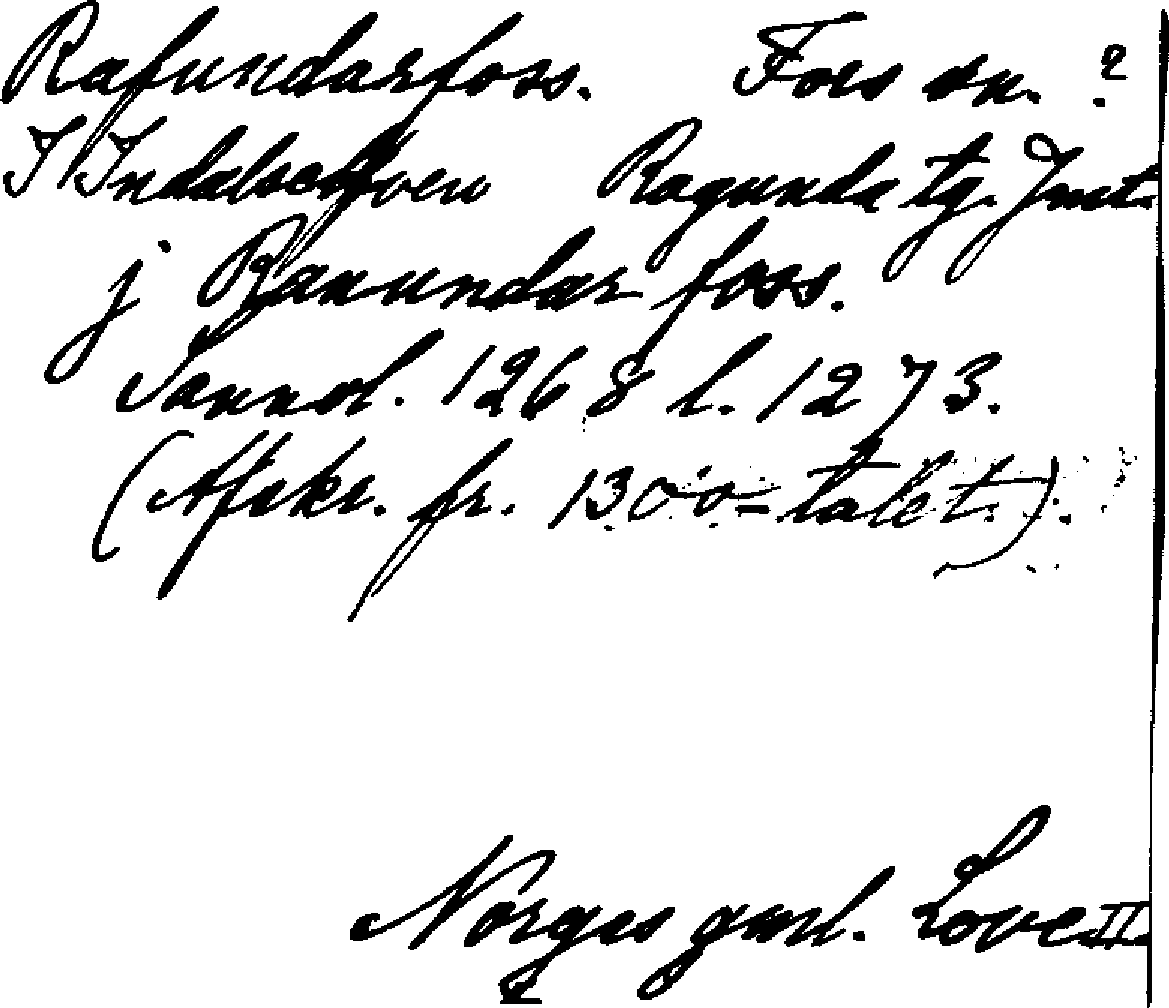 Rafundarfoss. Fors sn. ?
I Indalselfven Ragunda tg. Jmt.
j Ranundar foss.
Sannol. 1268 l. 1273.
(Afskr. fr. 1300-talet.).
Norges gml. Love II